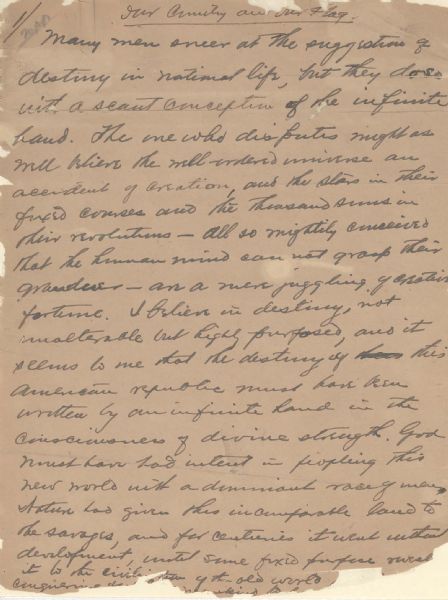 Our Country and Our Flag.
1/
Many men sneer at the suggestion of
destiny in national life, but they do so
with a scant conception of the infinite
hand. The one who disputes might as
well believe the well-ordered universe an
accident of creation, and the stars in their
fixed courses and the thousand suns in
their revolutions — all so mightily conceived
that the human mind can not grasp their
grandeur — are a mere juggling of creative
fortune. I believe in destiny, not
unalterable but highly purposed, and it
seems to me that the destiny of this
American republic must have been
written by an infinite hand in the
consciousness of divine strength. God
must have had intent in peopling this
new world with a dominant race of men.
Nature had given this incomparable land to
the savages, and for centuries it went without
development, until some fixed purpose
it to the civilization of the old world